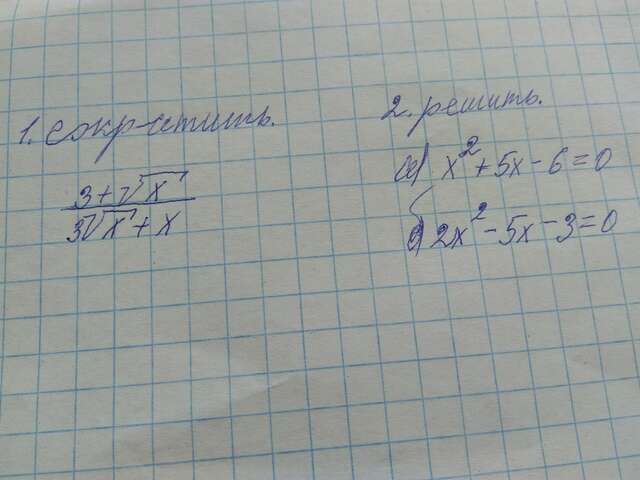 1. сократить.
3+√x
3√x + x
2. решить.
а) x² + 5x - 6 = 0
б) 2x² - 5x - 3 = 0